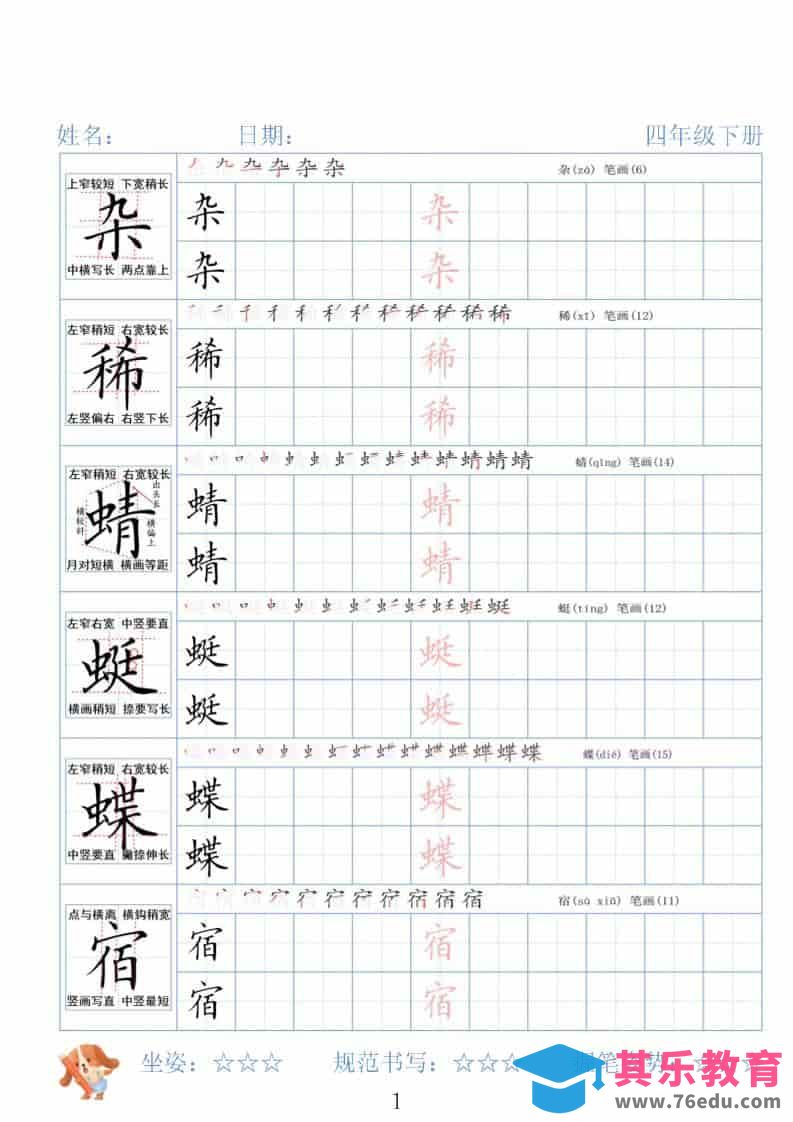 姓名： 日期： 四年级下册
杂(zá) 笔画(6)
上窄较短 下宽稍长
杂
中横写长 两点靠上
杂 杂
杂 杂
稀(xī) 笔画(12)
左窄稍短 右宽较长
稀
左竖偏右 右竖下长
稀 稀
稀 稀
蜻(qīng) 笔画(14)
左窄稍短 右宽较长
出头长
横较斜
蜻
横偏上
月对短横 横画等距
蜻 蜻
蜻 蜻
蜓(tíng) 笔画(12)
左窄右宽 中竖要直
蜓
横画稍短 捺要写长
蜓 蜓
蜓 蜓
蝶(dié) 笔画(15)
左窄稍短 右宽较长
蝶
中竖要直 撇捺伸长
蝶 蝶
蝶 蝶
宿(sù xiǔ) 笔画(11)
点与横离 横钩稍宽
宿
竖画写直 中竖最短
宿 宿
宿 宿
坐姿：☆☆☆ 规范书写：☆☆☆
其乐教育
www.76edu.com
1